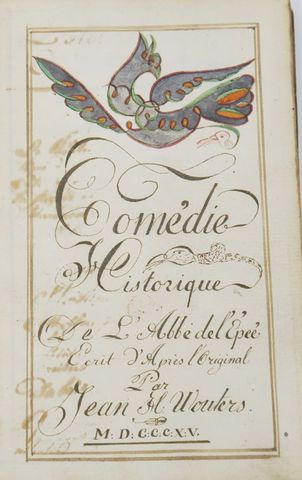 Comédie
Historique
De L'Abbé de l'Épeé
Ecrit D'Après l'Original
Par
Jean H. Wouters.
M. D. C C C. X V.